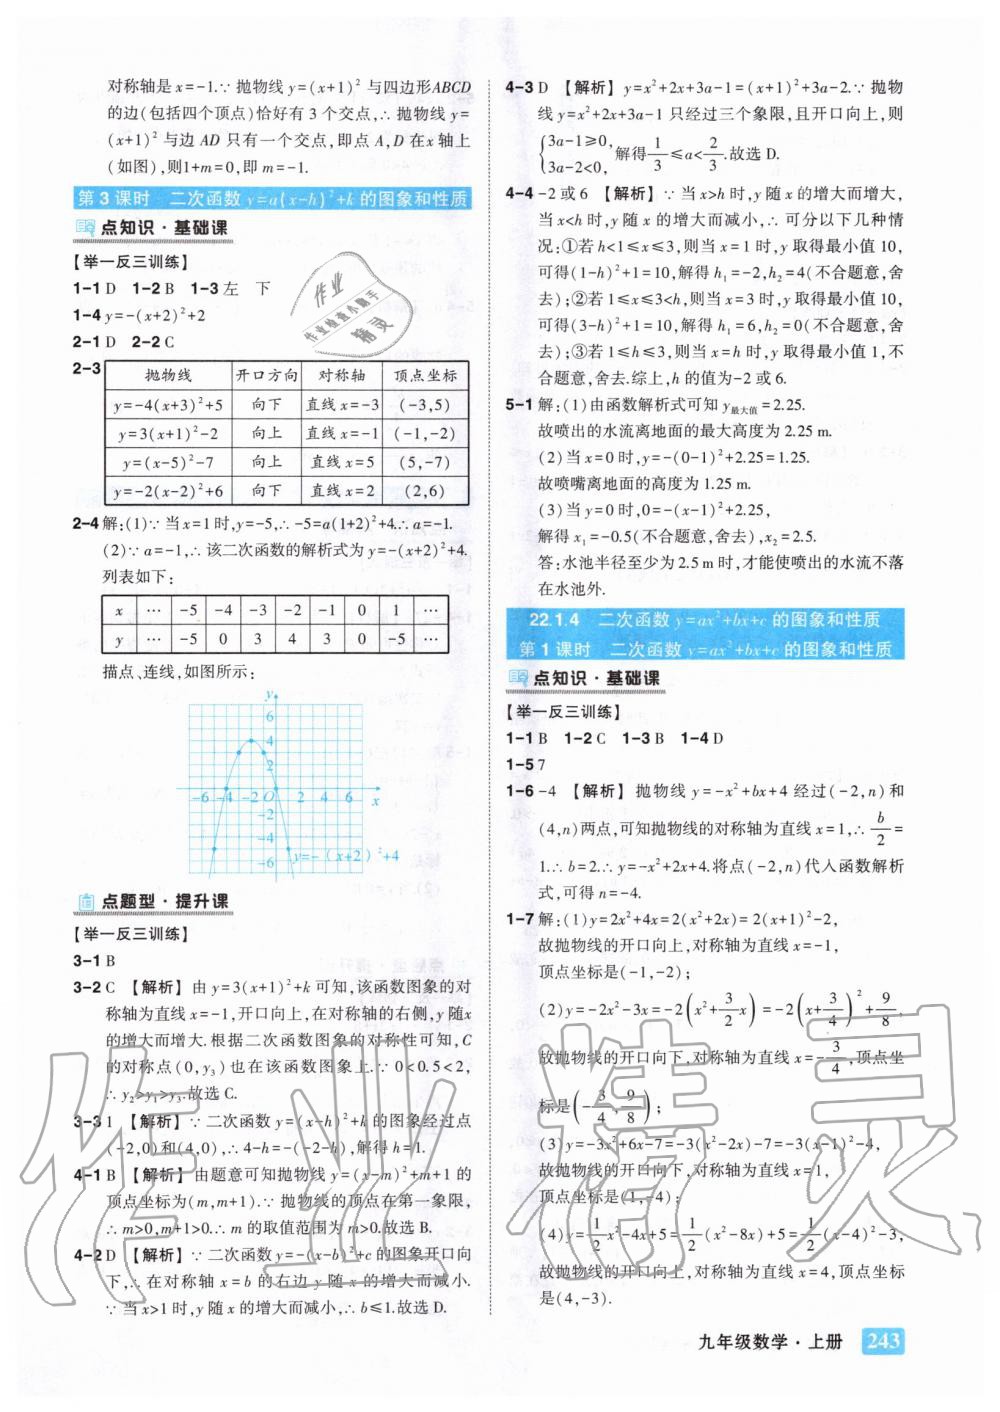 对称轴是x=-1.∵抛物线y=(x+1)²与四边形ABCD
的边(包括四个顶点)恰好有3个交点,∴抛物线y=
(x+1)²与边AD只有一个交点,即点A,D在x轴上
(如图),则1+m=0,即m=-1.
第3课时 二次函数y=a(x-h)²+k的图象和性质
点知识·基础课
【举一反三训练】
1-1 D 1-2 B 1-3 左 下
1-4 y=-(x+2)²+2
2-1 D 2-2 C
2-3
抛物线 开口方向 对称轴 顶点坐标
y=-4(x+3)²+5 向下 直线x=-3 (-3,5)
y=3(x+1)²-2 向上 直线x=-1 (-1,-2)
y=(x-5)²-7 向上 直线x=5 (5,-7)
y=-2(x-2)²+6 向下 直线x=2 (2,6)
2-4 解:(1)∵当x=1时,y=-5,∴-5=a(1+2)²+4.∴a=-1.
(2)∵a=-1,∴该二次函数的解析式为y=-(x+2)²+4.
列表如下:
x … -5 -4 -3 -2 -1 0 1 …
y … -5 0 3 4 3 0 -5 …
描点、连线,如图所示:
y
6
4
2
-6 -4 -2 O 2 4 6 x
-2
-4
-6 y=-(x+2)²+4
点题型·提升课
【举一反三训练】
3-1 B
3-2 C 【解析】由y=3(x+1)²+k可知,该函数图象的对
称轴为直线x=-1,开口向上,在对称轴的右侧,y随x
的增大而增大.根据二次函数图象的对称性可知,C
的对称点(0,y₃)也在该函数图象上.∵0<0.5<2,
∴y₂>y₁>y₃.故选C.
3-3 1 【解析】∵二次函数y=(x-h)²+k的图象经过点
(-2,0)和(4,0),∴4-h=-(-2-h),解得h=1.
4-1 B 【解析】由题意可知抛物线y=(x-m)²+m+1的
顶点坐标为(m,m+1).∵抛物线的顶点在第一象限,
∴m>0,m+1>0.∴m的取值范围为m>0.故选B.
4-2 D 【解析】∵二次函数y=-(x-b)²+c的图象开口向
下,∴在对称轴x=b的右边y随x的增大而减小.
∵当x>1时,y随x的增大而减小,∴b≤1.故选D.
4-3 D 【解析】y=x²+2x+3a-1=(x+1)²+3a-2.∵抛物
线y=x²+2x+3a-1只经过三个象限,且开口向上,则
{3a-1≥0, 3a-2<0, 解得1/3≤a<2/3.故选D.
4-4 -2或6 【解析】∵当x>h时,y随x的增大而增大,
当x<h时,y随x的增大而减小,∴可分以下几种情
况:①若h<1≤x≤3,则当x=1时,y取得最小值10,
可得(1-h)²+1=10,解得h₁=-2,h₂=4(不合题意,舍
去);②若1≤x≤3<h,则当x=3时,y取得最小值10,
可得(3-h)²+1=10,解得h₁=6,h₂=0(不合题意,舍
去);③若1≤h≤3,则当x=h时,y取得最小值1,不
合题意,舍去.综上,h的值为-2或6.
5-1 解:(1)由函数解析式可知y最大值=2.25.
故喷出的水流离地面的最大高度为2.25 m.
(2)当x=0时,y=-(0-1)²+2.25=1.25.
故喷嘴离地面的高度为1.25 m.
(3)当y=0时,0=-(x-1)²+2.25,
解得x₁=-0.5(不合题意,舍去),x₂=2.5.
答:水池半径至少为2.5 m时,才能使喷出的水流不落
在水池外.
22.1.4 二次函数y=ax²+bx+c的图象和性质
第1课时 二次函数y=ax²+bx+c的图象和性质
点知识·基础课
【举一反三训练】
1-1 B 1-2 C 1-3 B 1-4 D
1-5 7
1-6 -4 【解析】抛物线y=-x²+bx+4经过(-2,n)和
(4,n)两点,可知抛物线的对称轴为直线x=1,∴b/2=
1.∴b=2.∴y=-x²+2x+4.将点(-2,n)代入函数解析
式,可得n=-4.
1-7 解:(1)y=2x²+4x=2(x²+2x)=2(x+1)²-2,
故抛物线的开口向上,对称轴为直线x=-1,
顶点坐标是(-1,-2);
(2)y=-2x²-3x=-2(x²+3/2x)=-2(x+3/4)²+9/8,
故抛物线的开口向下,对称轴为直线x=-3/4,顶点坐
标是(-3/4,9/8);
(3)y=-3x²+6x-7=-3(x²-2x)-7=-3(x-1)²-4,
故抛物线的开口向下,对称轴为直线x=1,
顶点坐标是(1,-4);
(4)y=1/2x²-4x+5=1/2(x²-8x)+5=1/2(x-4)²-3,
故抛物线的开口向上,对称轴为直线x=4,顶点坐标
是(4,-3).
九年级数学·上册 243
作业
作业检查小助手
精灵
作业精灵